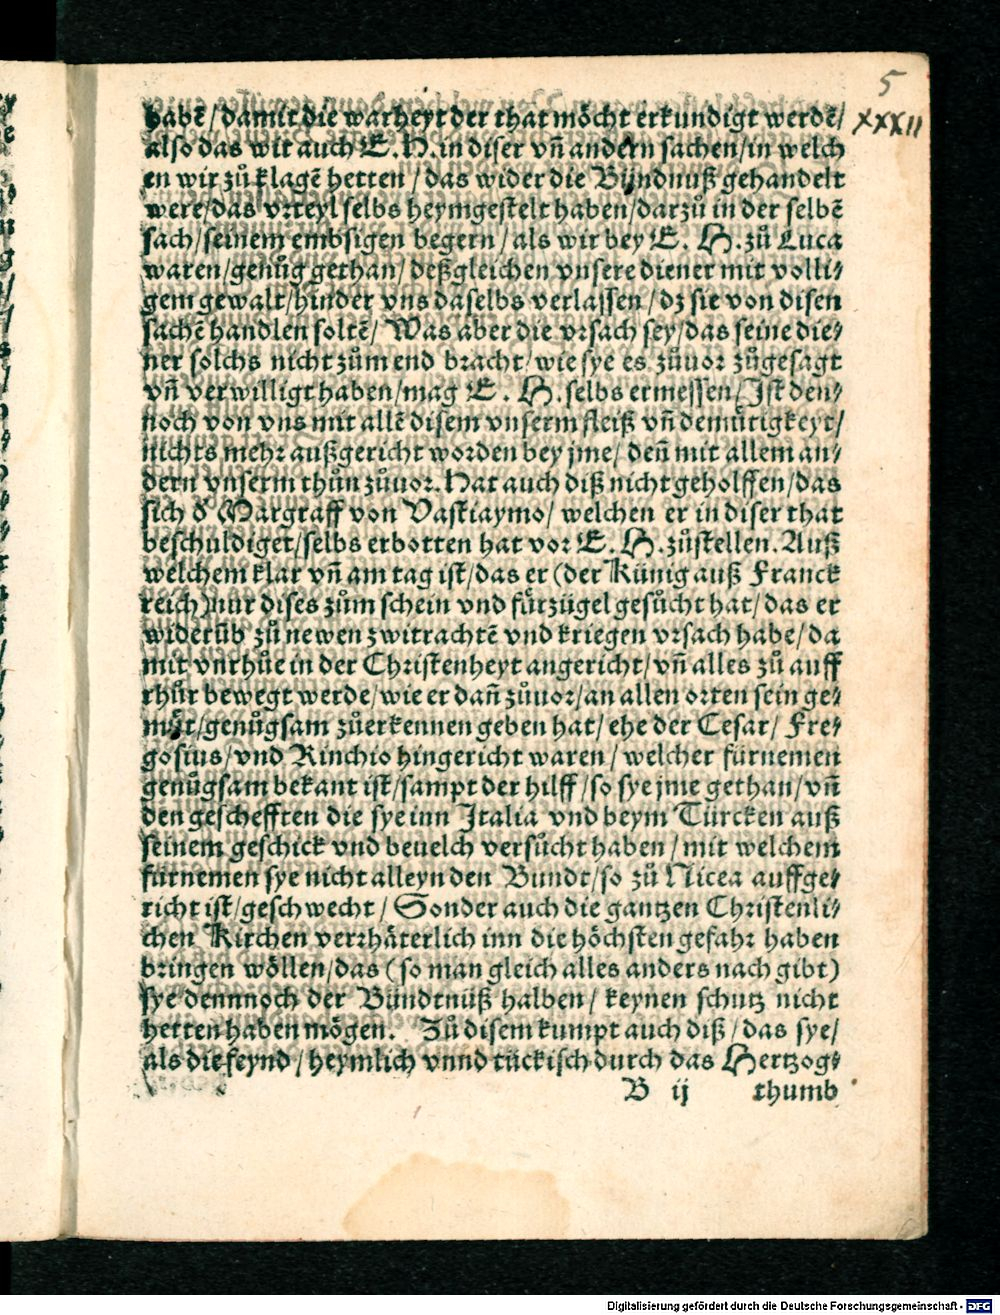 5
XXXII
habẽ/damit die warheyt der that möcht erkundigt werdẽ/
also das wir auch E. H. in diser vñ andern sachen/in welch
en wir zů klagẽ hetten/das wider die Bündnuß gehandelt
were/das vrteyl selbs heymgestelt haben/darzů in der selbẽ
sach/seinem embsigen begern/als wir bey E. H. zů Luca
waren/genůg gethan/deßgleichen vnsere diener mit volli⸗
gem gewalt/hinder vns daselbs verlassen/dz sie von disen
sachẽ handlen soltẽ/Was aber die vrsach sey/das seine die⸗
ner solchs nicht zům end bracht/wie sye es zůuor zůgesagt
vñ verwilligt haben/mag E. H. selbs ermessen/Ist den⸗
noch von vns mit allẽ disem vnserm fleiß vñ demütigkeyt/
nichts mehr außgericht worden bey jme/deñ mit allem an⸗
dern vnserm thůn zůuor. Hat auch diß nicht geholffen/das
sich d̕ Margraff von Vastiaymo/welchen er in diser that
beschuldiget/selbs erbotten hat vor E. H. zůstellen. Auß
welchem klar vñ am tag ist/das er (der Künig auß Franck
reich) nur dises zům schein vnd fürzügel gesůcht hat/das er
widerũb zů newen zwitrachtẽ vnd kriegen vrsach habe/da
mit vnrhůe in der Christenheyt angericht/vñ alles zů auff
rhůr bewegt werde/wie er dañ zůuor/an allen orten sein ge⸗
müt/genůgsam zůerkennen geben hat/ehe der Cesar/Fre⸗
gosius/vnd Rinchio hingericht waren/welcher fürnemen
genůgsam bekant ist/sampt der hilff/so sye jme gethan/vñ
den geschefften die sye inn Italia vnd beym Türcken auß
seinem geschick vnd beuelch versůcht haben/mit welchem
fürnemen sye nicht alleyn den Bundt/so zů Nicea auffge⸗
richt ist/geschwecht/Sonder auch die gantzen Christenli⸗
chen Kirchen verrhäterlich inn die höchsten gefahr haben
bringen wöllen/das (so man gleich alles anders nach gibt)
sye dennnoch der Bündtnüß halben/keynen schutz nicht
hetten haben mögen. Zů disem kumpt auch diß/das sye/
als die feynd/heymlich vnnd tückisch durch das Hertzog⸗
B ij thumb
Digitalisierung gefördert durch die Deutsche Forschungsgemeinschaft - DFG